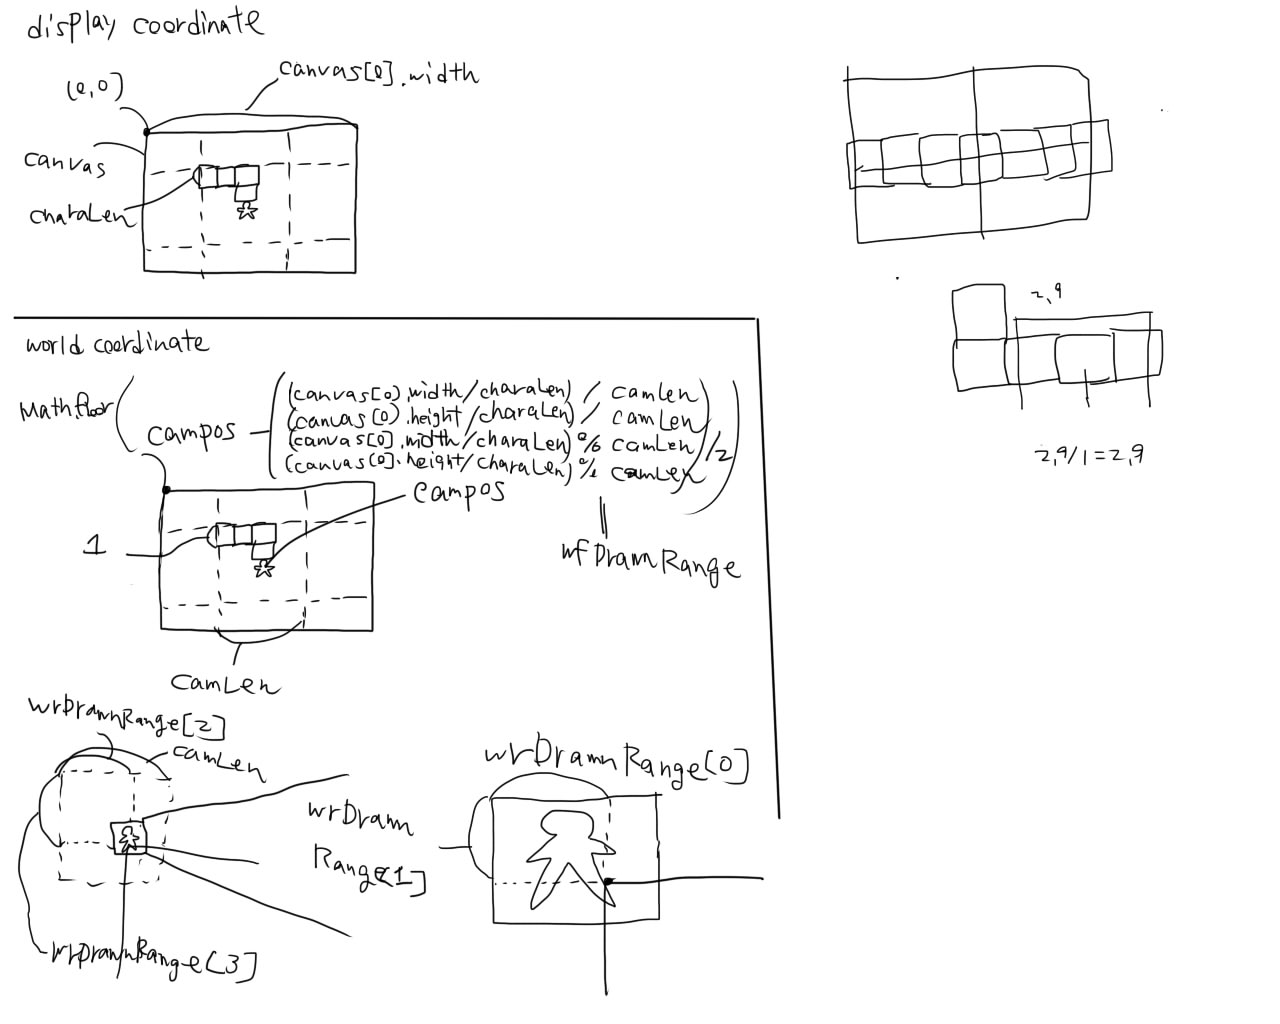 display coordinate
canvas[0].width
(0,0)
canvas
charaLen
world coordinate
Math.floor
campos
(canvas[0].width/charaLen) / camLen
(canvas[0].height/charaLen) / camLen
(canvas[0].width/charaLen) % camLen
(canvas[0].height/charaLen) % camLen
/2
campos
1
wfDrawnRange
camLen
wrDrawnRange[2]
camLen
wrDrawn
Range[1]
wrDrawnRange[3]
wrDrawnRange[0]
2,9
2,9/1=2,9